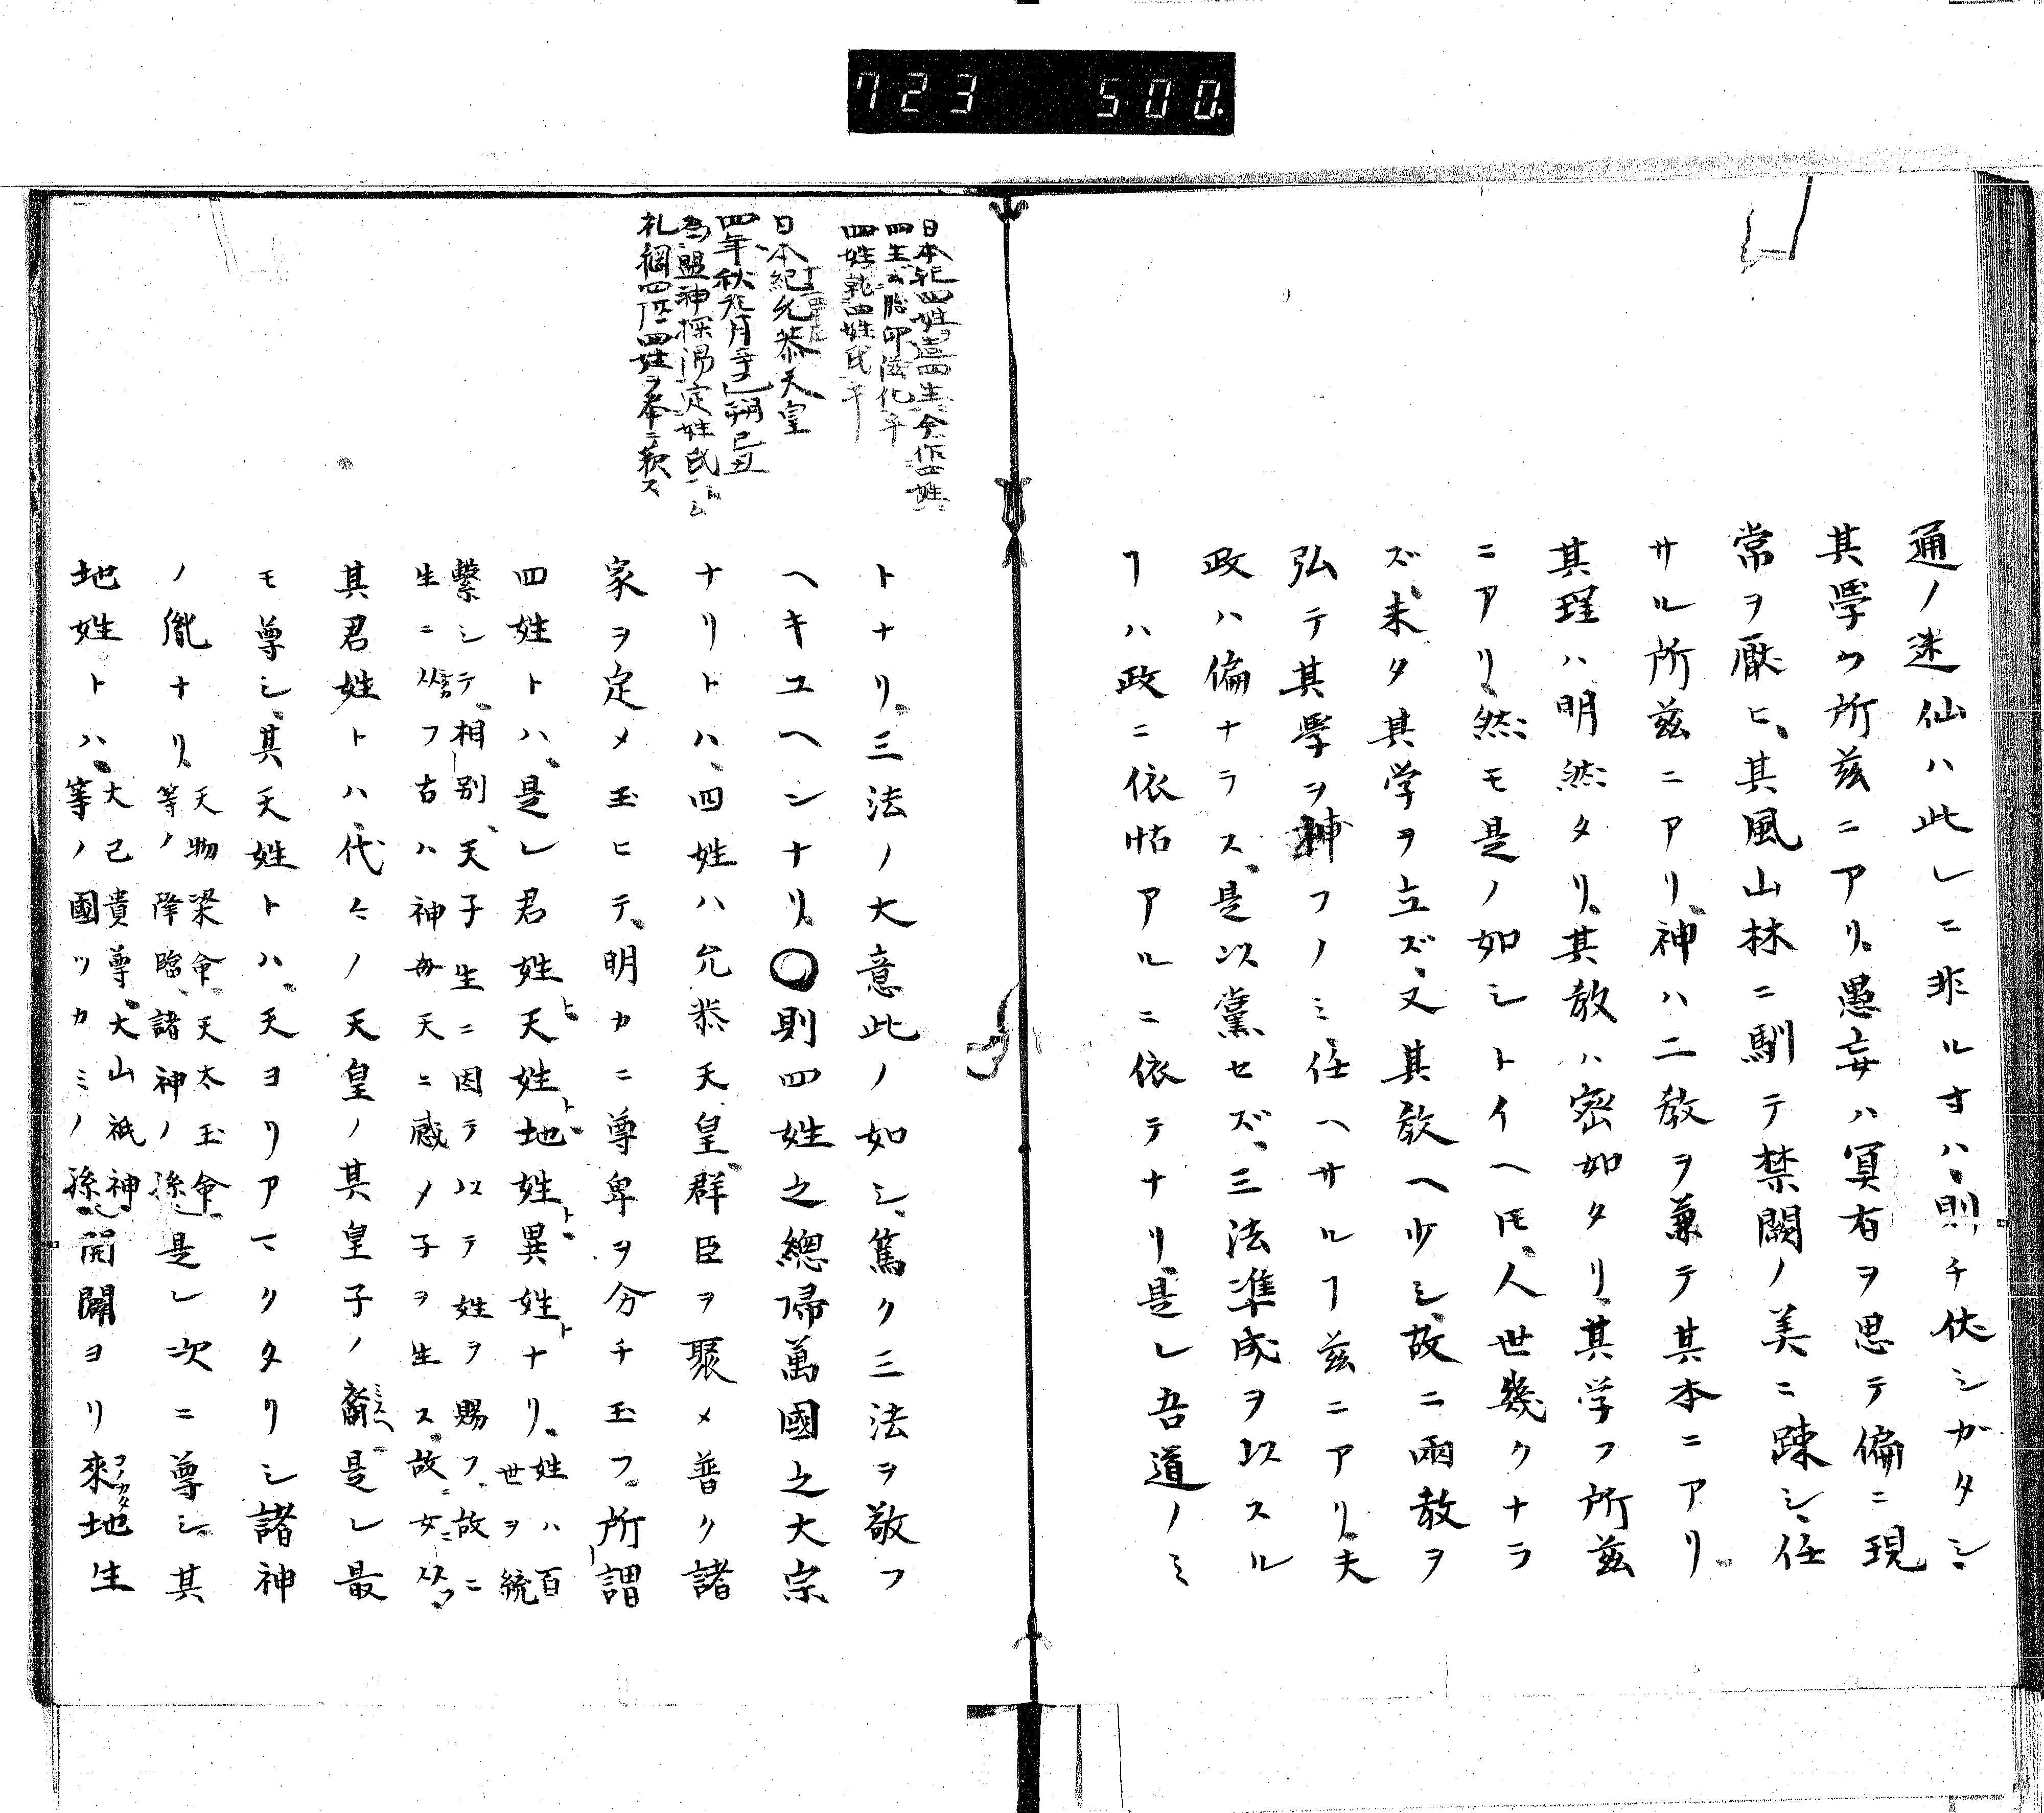 723 500.
通ノ迷仙ハ此レニ非ルオハ、則チ伏シガタシ、
其學ウ所茲ニアリ、愚妄ハ冥有ヲ思テ偏ニ現
常ヲ厭ヒ、其風山林ニ馴テ禁闕ノ美ニ踈シ、任
サル所茲ニアリ、神ハ二教ヲ兼テ其本ニアリ。
其理ハ明然タリ、其教ハ密如タリ、其学フ所茲
ニアリ、然モ是ノ如シトイヘ𪜈、人世幾クナラ
ズ、未タ其学ヲ立ズ、又其教ヘ少シ、故ニ兩教ヲ
弘テ其學ヲ補フノミ、任ヘサルヿ茲ニアリ、夫
政ハ偏ナラス、是以黨セズ、三法準成ヲ以スル
ヿハ政ニ依怙アルニ依テナリ、是レ吾道ノミ
日本紀四姓這四生、今作四姓
四生ハ胎卵湿化乎
四姓乾四姓氏乎
日本紀允恭天皇
四年秋九月辛巳朔己丑
為盟神探湯定姓氏云云
トナリ。三法ノ大意此ノ如シ、篤ク三法ヲ敬フ
ヘキユヘンナリ。〇則四姓之總帰萬國之大宗
ナリトハ、四姓ハ允恭天皇、群臣ヲ聚メ普ク諸
家ヲ定メ玉ヒテ、明カニ尊卑ヲ分チ玉フ。所謂
四姓トハ、是レ君姓ト天姓ト地姓ト異姓トナリ。姓ハ百世ヲ統
繫シテ、相別、天子生ニ因テ以テ姓ヲ賜フ、故ニ
生ニ从フ古ハ神母天ニ感メ子ヲ生ス、故ニ女ニ从フ、
其君姓トハ、代々ノ天皇ノ其皇子ノ裔是レ最
モ尊シ、其天姓トハ、天ヨリアマクタリシ諸神
ノ胤ナリ、天物梁命、天太玉命等ノ降臨、諸神ノ孫是レ次ニ尊シ、其
地姓トハ、大己貴尊、大山祇神等ノ國ツカミノ孫開闢ヨリ來コノカタ地生